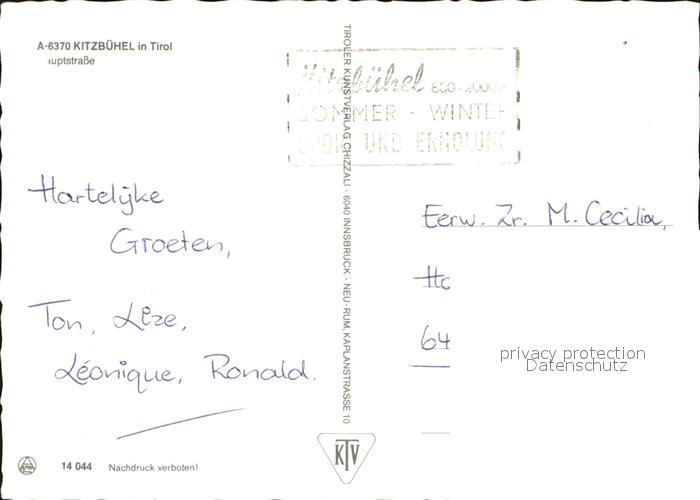 A-6370 KITZBÜHEL in Tirol
auptstraße
Kitzbühel 800-2000m
SOMMER - WINTER
SPORT UND ERHOLUNG
Hartelijke
Groeten,
Ton, Lize,
Léonique, Ronald.
TIROLER KUNSTVERLAG CHIZZALI - 6040 INNSBRUCK - NEU-RUM, KAPLANSTRASSE 10
Eerw. Zr. M. Cecilia,
Ho
64
privacy protection
Datenschutz
KTV
14 044 Nachdruck verboten!